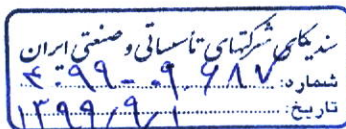 سندیکای شرکتهای تأسیساتی و صنعتی ایران
شماره: ۴۰۹۹-۰۹۰۶۸۷
تاریخ: ۱۳۹۹/۹/۱